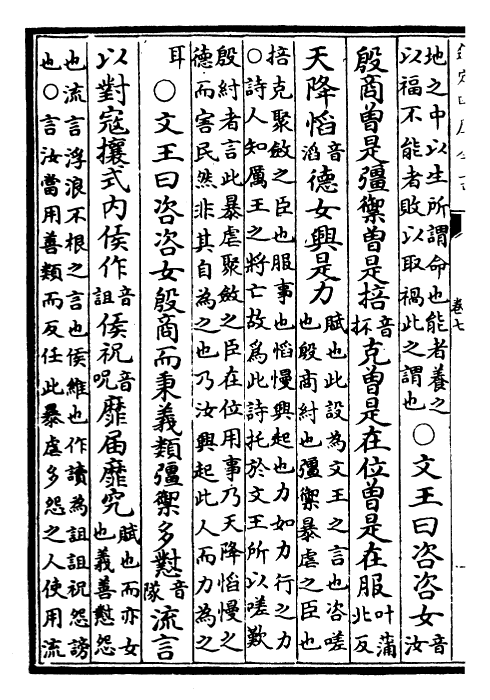 卷七
地之中以生所謂命也能者養之
以福不能者敗以取禍此之謂也
○文王曰咨咨女音汝
殷商曾是彊禦曾是掊音抔克曾是在位曾是在服叶蒲北反
天降慆音滔德女興是力
賦也此設為文王之言也咨嗟
也殷商紂也彊禦暴虐之臣也
掊克聚斂之臣也服事也慆慢興起也力如力行之力
○詩人知厲王之將亡故爲此詩托於文王所以嗟歎
殷紂者言此暴虐聚斂之臣在位用事乃天降慆慢之
德而害民然非其自為之也乃汝興起此人而力為之
耳
○文王曰咨咨女殷商而秉義類彊禦多懟音隊流言
以對寇攘式内侯作音詛侯祝音呪靡届靡究
賦也而亦女
也義善懟怨
也流言浮浪不根之言也侯維也作讀為詛詛祝怨謗
也○言汝當用善類而反任此暴虐多怨之人使用流